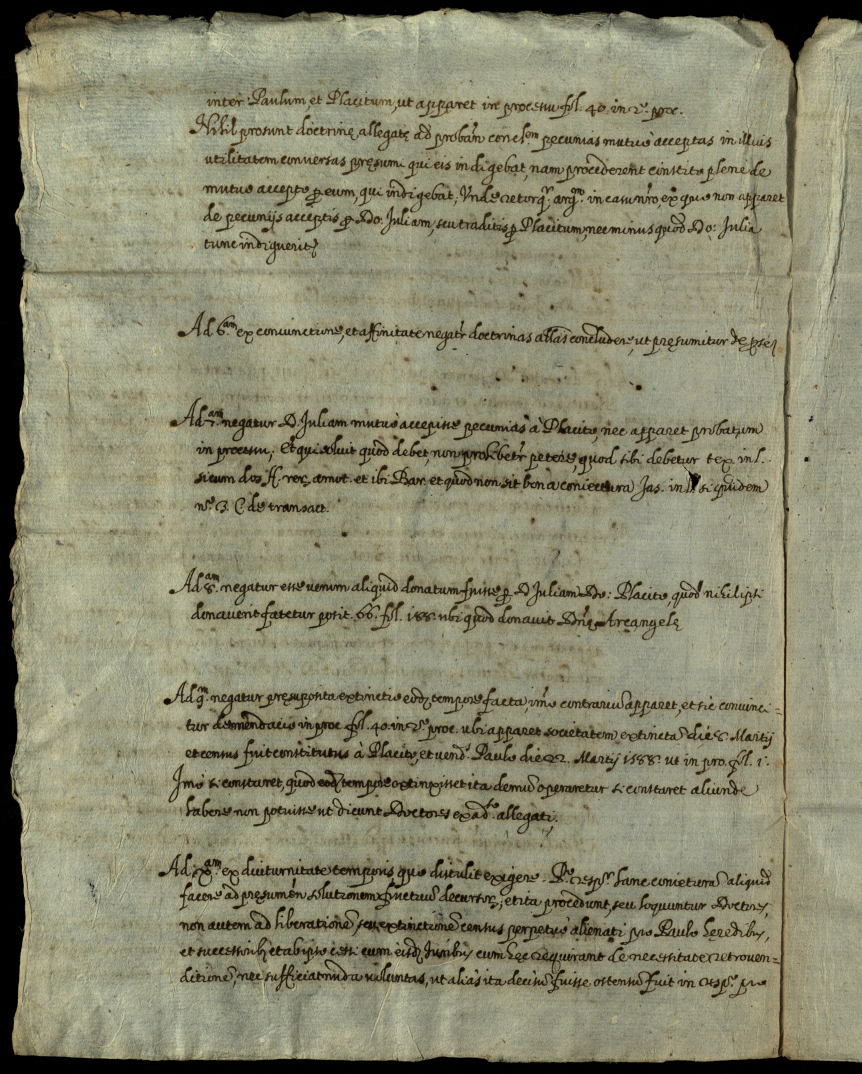 inter Paulum, et Placitum, ut apparet in processu fol. 40. in 2º. proc.
Nihil prosunt doctrinę allegatę ad probān conclem pecunias mutuò acceptas in illius
utilitatem conversas pręsumi qui eis indigebat, nam procederent constito plene de
mutuo accepto p eum, qui indigebat, Unde retorqr argm. in casu nro ex quo non apparet
de pecunijs acceptis p Do: Juliam, seu traditis p Placitum, nec minus quod Do: Julia
tunc indiguerit
Ad 6am ex coniunctione, et affinitate negatr doctrinas allas concludere, ut pręsumitur de
Ad 7.am negatur D. Juliam mutuò accepisse pecunias à Placito, nec apparet probatum
in processu; Et qui soluit quod debet, non prohibetr petere, quod sibi debetur tex. in l.
si cum dos ff. rer. amot. et ibi Bar. et quod non sit bona coniectura Jas. in l. si quidem
nº 3. C. de transact.
Ad 8.am negatur esse verum aliquid donatum fuisse p D. Juliam Do: Placito, quod nihil ipsi
donaverit fatetur posit. 66. fol. 188. ubi quod donavit Dnę Arcangelę
Ad 9.m negatur pręsuposita extinctio eodz tempore facta, imò contrariū apparet, et sic convinci=
tur de mendacio in proc. fol. 40. in 2º proc. ubi apparet societatem extinctā die 8. Martij
et census fuit constitutus à Placito, et vend. Paulo die 22. Martij 1588. ut in pro. fol. 1.
Imò si constaret, quod eodz tempore extinxisset ita demū operaretur si constaret aliunde
habere non potuisse ut dicunt Doctores ex adº allegati.
Ad xam. ex diuturnitate temporis quo distulit exigere. Rº respr hanc conieturā aliquid
facere ad pręsumēn solutionem fructuū decursor; et ita procedunt, seu loquuntur Doctores,
non autem ad liberationē, seu extinctionē census perpetuò alienati pro Paulo hęredibus,
et successoribus et ab ipso cessi cum eisdz Juribus cum hęc requirant de necessitate retroven=
ditionē, nec sufficiat nuda voluntas, ut alias ita decisū fuisse ostensū fuit in resp. pro